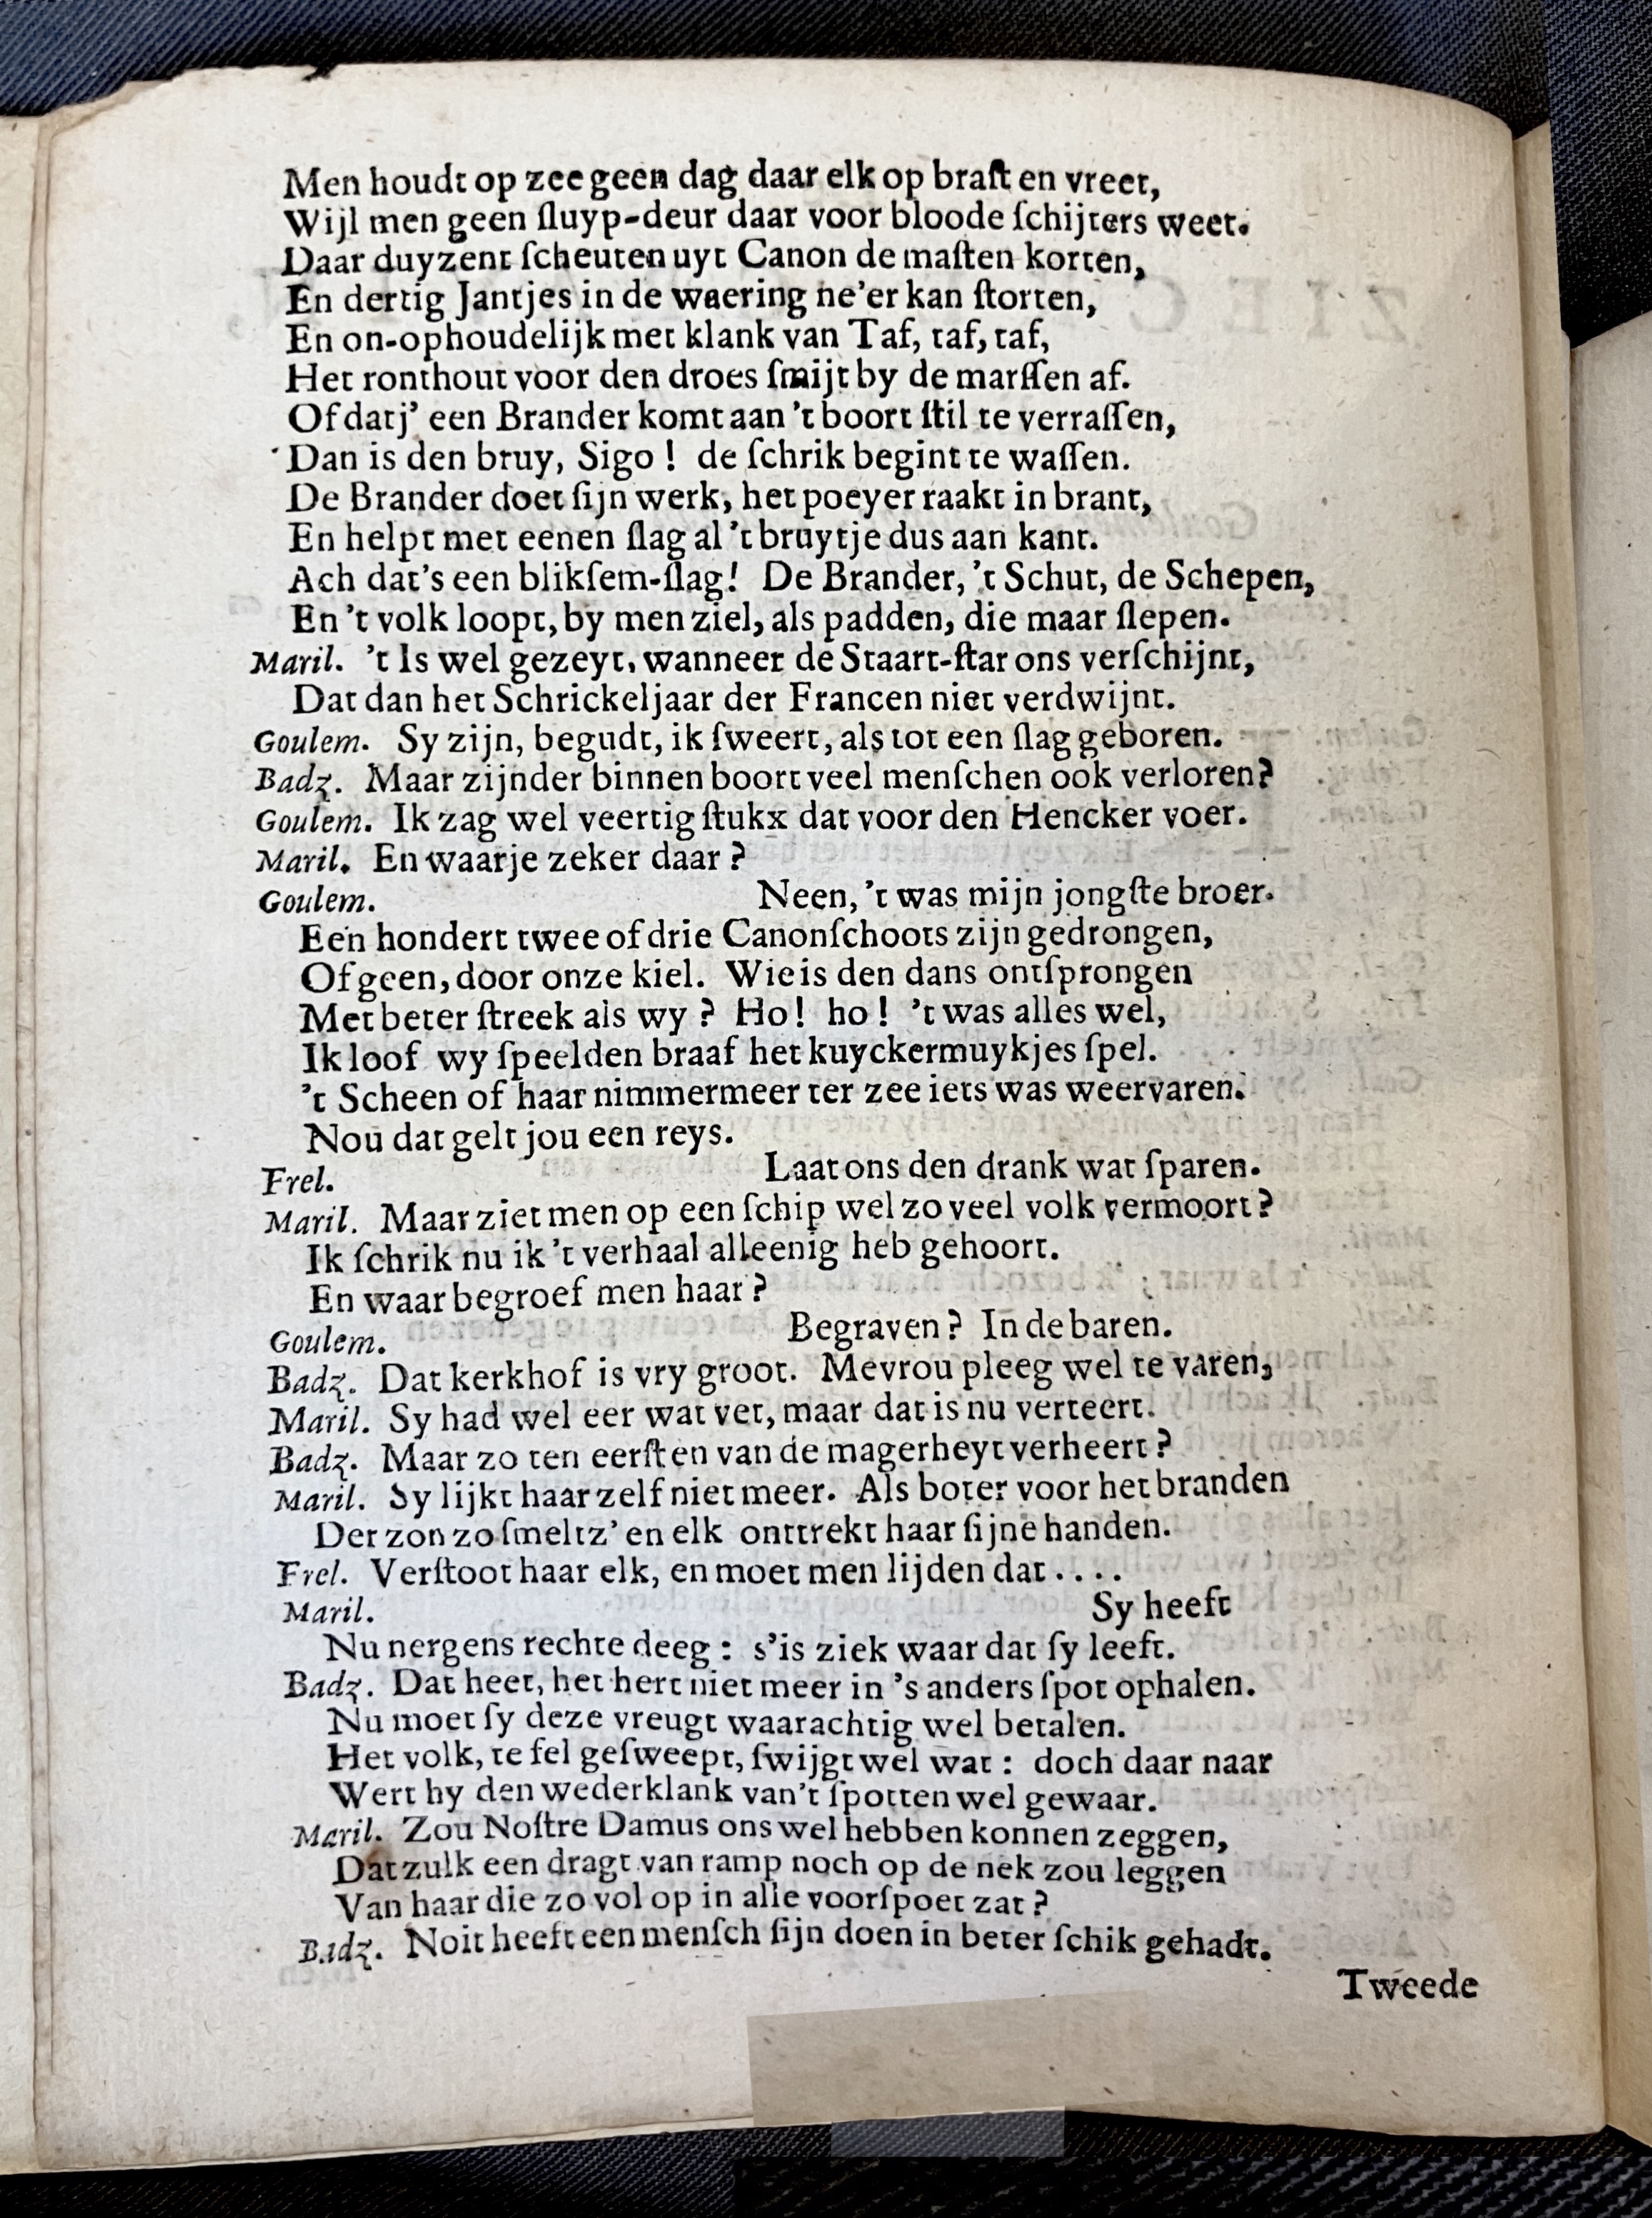 Men houdt op zee geen dag daar elk op braſt en vreet,
Wijl men geen ſluyp-deur daar voor bloode ſchijters weet.
Daar duyzent ſcheuten uyt Canon de maſten korten,
En dertig Jantjes in de waering ne'er kan ſtorten,
En on-ophoudelijk met klank van Taf, taf, taf,
Het ronthout voor den droes ſmijt by de marſſen af.
Of datj' een Brander komt aan 't boort ſtil te verraſſen,
Dan is den bruy, Sigo! de ſchrik begint te waſſen.
De Brander doet ſijn werk, het poeyer raakt in brant,
En helpt met eenen ſlag al 't bruytje dus aan kant.
Ach dat's een blikſem-ſlag! De Brander, 't Schut, de Schepen,
En 't volk loopt, by men ziel, als padden, die maar ſlepen.
Maril. 't Is wel gezeyt, wanneer de Staart-ſtar ons verſchijnt,
Dat dan het Schrickeljaar der Francen niet verdwijnt.
Goulem. Sy zijn, begudt, ik ſweert, als tot een ſlag geboren.
Badz. Maar zijnder binnen boort veel menſchen ook verloren?
Goulem. Ik zag wel veertig ſtukx dat voor den Hencker voer.
Maril. En waarje zeker daar?
Goulem. Neen, 't was mijn jongſte broer.
Een hondert twee of drie Canonſchoots zijn gedrongen,
Of geen, door onze kiel. Wie is den dans ontſprongen
Met beter ſtreek als wy? Ho! ho! 't was alles wel,
Ik loof wy ſpeelden braaf het kuyckermuykjes ſpel.
't Scheen of haar nimmermeer ter zee iets was weervaren.
Nou dat gelt jou een reys.
Frel. Laat ons den drank wat ſparen.
Maril. Maar ziet men op een ſchip wel zo veel volk vermoort?
Ik ſchrik nu ik 't verhaal alleenig heb gehoort.
En waar begroef men haar?
Goulem. Begraven? In de baren.
Badz. Dat kerkhof is vry groot. Mevrou pleeg wel te varen,
Maril. Sy had wel eer wat vet, maar dat is nu verteert.
Badz. Maar zo ten eerſten van de magerheyt verheert?
Maril. Sy lijkt haar zelf niet meer. Als boter voor het branden
Der zon zo ſmeltz' en elk onttrekt haar ſijne handen.
Frel. Verſtoot haar elk, en moet men lijden dat....
Maril. Sy heeft
Nu nergens rechte deeg: s'is ziek waar dat ſy leeft.
Badz. Dat heet, het hert niet meer in 's anders ſpot ophalen.
Nu moet ſy deze vreugt waarachtig wel betalen.
Het volk, te fel geſweept, ſwijgt wel wat: doch daar naar
Wert hy den wederklank van't ſpotten wel gewaar.
Maril. Zou Noſtre Damus ons wel hebben konnen zeggen,
Dat zulk een dragt van ramp noch op de nek zou leggen
Van haar die zo vol op in alle voorſpoet zat?
Badz. Noit heeft een menſch ſijn doen in beter ſchik gehadt.
Tweede